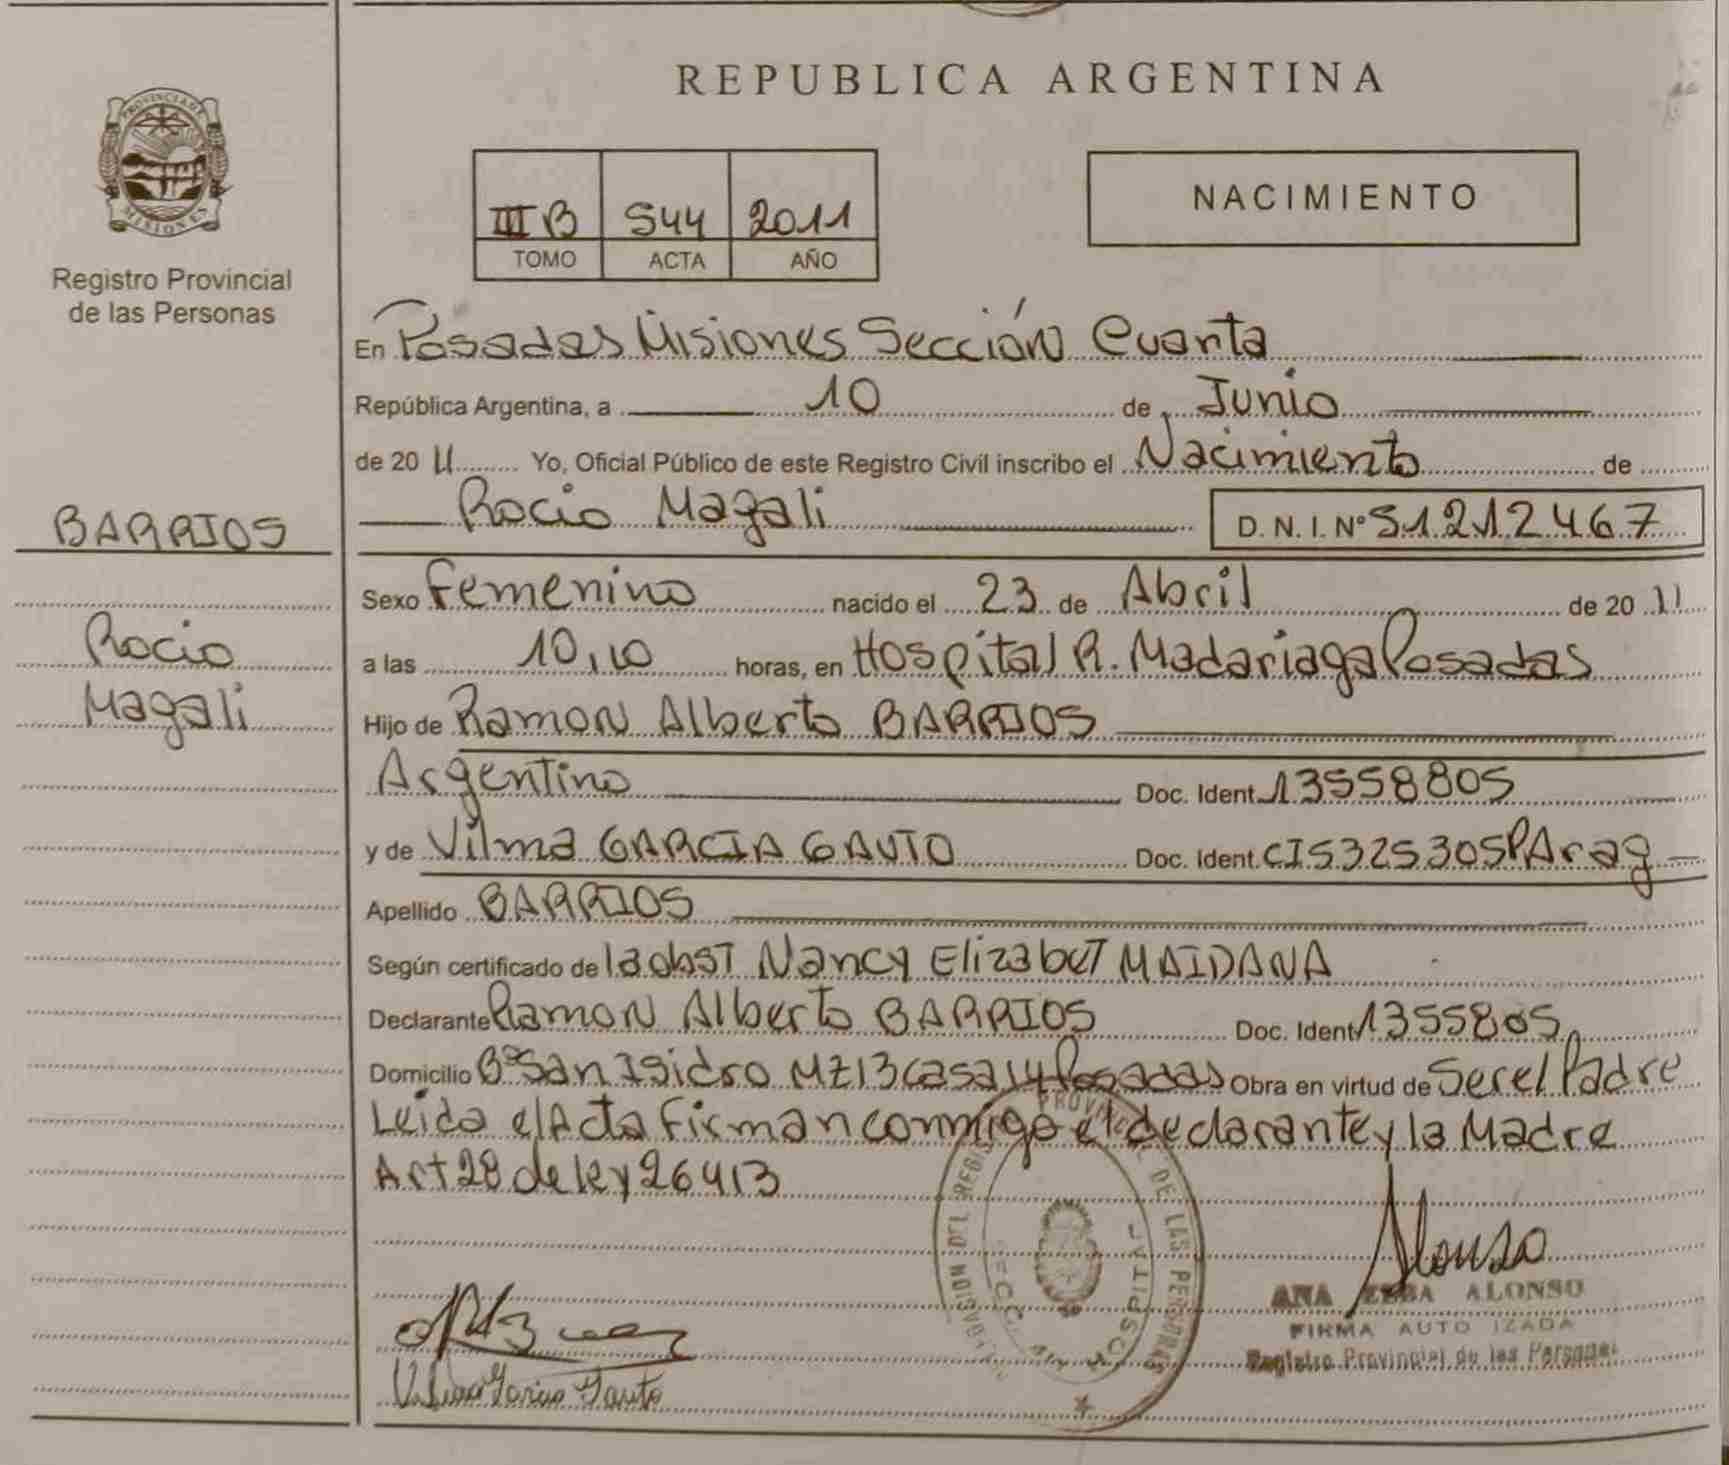 PROVINCIA DE
MISIONES
Registro Provincial
de las Personas
BARRIOS
Rocio
Magali
REPUBLICA ARGENTINA
III B 544 2011
TOMO ACTA AÑO
NACIMIENTO
En Posadas Misiones Sección Cuarta
República Argentina, a 10 de Junio
de 20 11 Yo, Oficial Público de este Registro Civil inscribo el Nacimiento de
Rocio Magali D. N. I. Nº 51212467
Sexo Femenino nacido el 23 de Abril de 20 11
a las 10,10 horas, en Hospital R. Madariaga Posadas
Hijo de Ramon Alberto BARRIOS
Argentino Doc. Ident. 13558805
y de Vilma GARCIA GAUTO Doc. Ident. CI5325305PArag
Apellido BARRIOS
Según certificado de la obst Nancy Elizabet MAIDANA
Declarante Ramon Alberto BARRIOS Doc. Ident. 1355805
Domicilio Bº San Isidro MZ13 casa 14 Posadas Obra en virtud de Ser el Padre
Leida el Acta Firman conmigo el declarante y la Madre
Art 28 de ley 26413
DE LAS PERSONAS
Alonso
ANA ALONSO
FIRMA AUTO IZADA
Registro Provincial de las Personas
Vilma Garcia Gauto